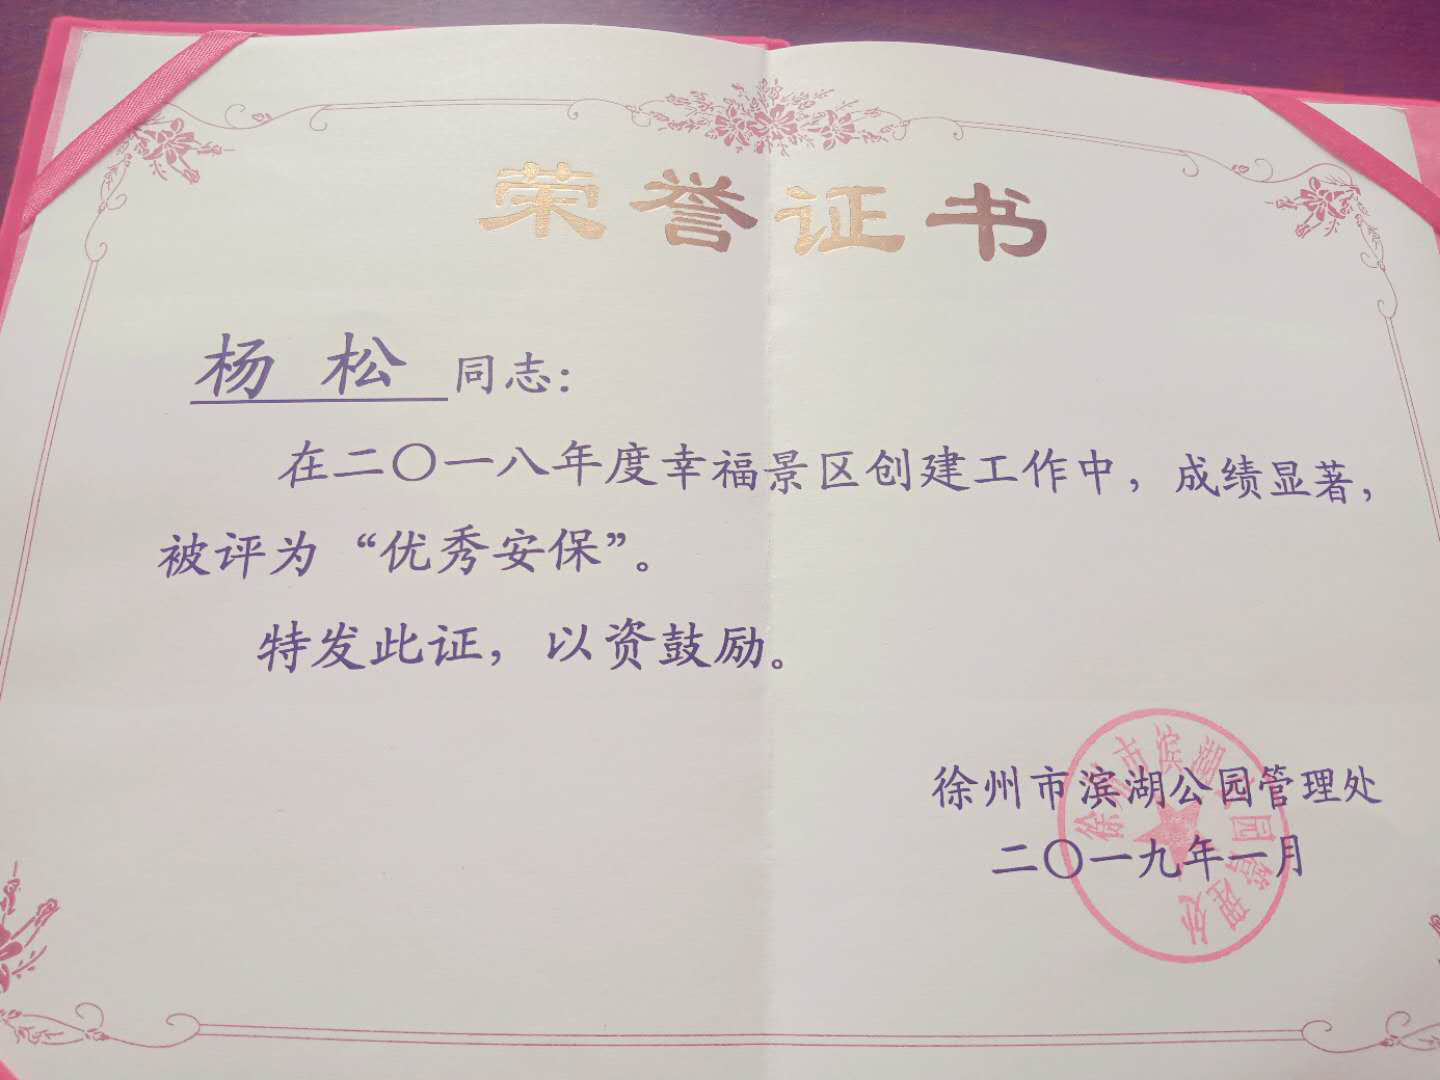 荣誉证书
杨 松 同志：
在二〇一八年度幸福景区创建工作中，成绩显著，
被评为“优秀安保”。
特发此证，以资鼓励。
徐州市滨湖公园管理处
二〇一九年一月
徐州市滨湖公园管理处